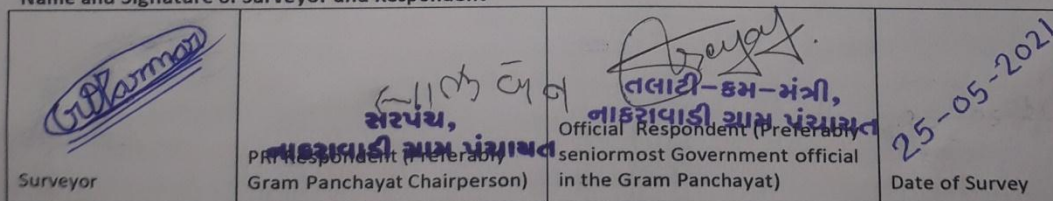 Name and Signature of Surveyor and Respondent
Surveyor
સરપંચ,
નાકરાવાડી ગ્રામ પંચાયત
PRI Respondent (Preferably
Gram Panchayat Chairperson)
તલાટી-કમ-મંત્રી,
નાકરાવાડી ગ્રામ પંચાયત
Official Respondent (Preferably
seniormost Government official
in the Gram Panchayat)
25-05-2021
Date of Survey